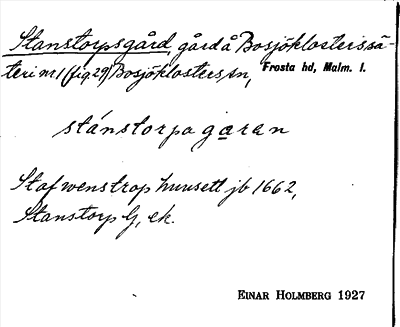 Stanstorpsgård, gård å Bosjöklosters sä-
teri nr 1 (fig 29) Bosjöklosters sn, Frosta hd, Malm. l.
stánstorpagaran
Stafwenstrop huusett jb 1662,
Stanstorp G, ek.
EINAR HOLMBERG 1927